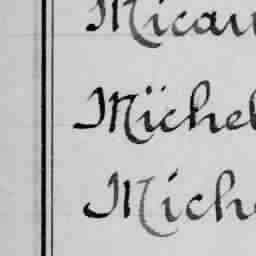 Micau
Mïchel
Miche